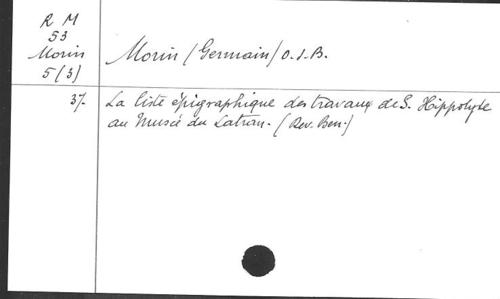 R M
53
Morin
5(3)
Morin (Germain) O.S.B.
37. La liste épigraphique des travaux de S. Hippolyte
au Musée du Latran. (Rev. Ben.)